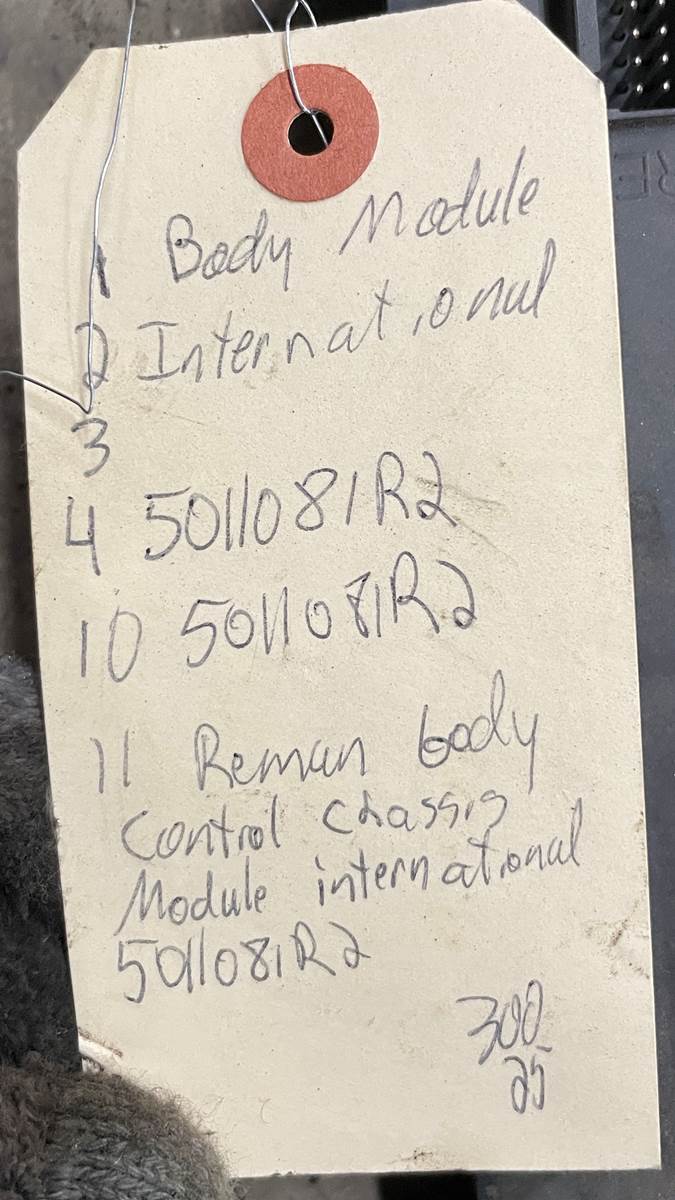 1 Body Module
2 International
3
4 5011081R2
10 5011081R2
11 Reman body
Control chassis
Module international
5011081R2
300
25